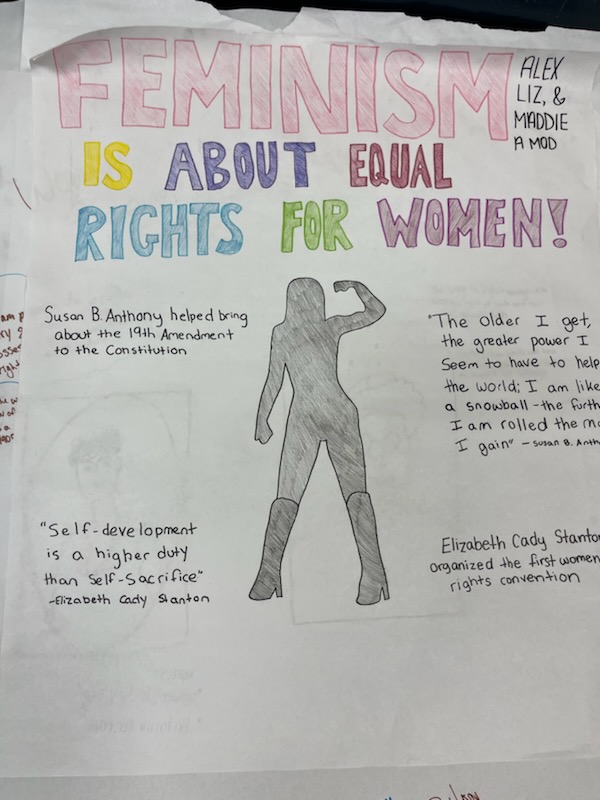 FEMINISM
IS ABOUT EQUAL
RIGHTS FOR WOMEN!
ALEX
LIZ, &
MADDIE
A MOD
Susan B. Anthony helped bring
about the 19th Amendment
to the Constitution
"The older I get,
the greater power I
seem to have to help
the world; I am like
a snowball - the furth
I am rolled the mo
I gain" - Susan B. Anth
"Self-development
is a higher duty
than self-sacrifice"
-Elizabeth Cady Stanton
Elizabeth Cady Stanton
organized the first women
rights convention